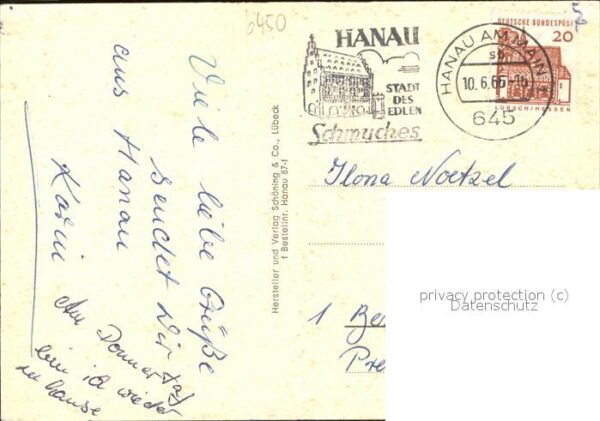 3450
Viele liebe Grüße
sendet Dir
aus Hanau
Karin
Am Donnerstag
bin ich wieder
zu hause
Hersteller und Verlag Schöning & Co., Lübeck
f Bestellnr. Hanau 87-f
HANAU
STADT
DES
EDLEN
Schmuckes
HANAU AM MAIN 1
sb
10.6.66-16
645
DEUTSCHE BUNDESPOST
20
LORSCH/HESSEN
Ilona Noetzel
1 Be
Pre
privacy protection (c)
Datenschutz